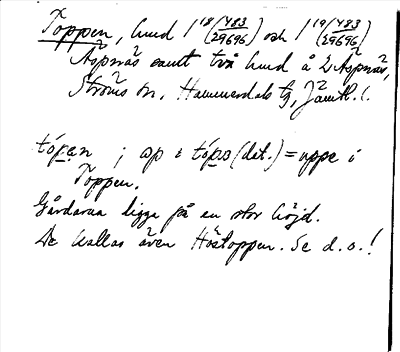 Toppen, hmd 1¹⁸(483/29696) och 1¹⁹(483/29696)
Aspnäs samt två hmd å 2 Aspnäs,
Ströms sn, Hammerdals tg, Jämtl. l.
tópen ; op i tópo (dat.) = uppe i
Toppen.
Gårdarna ligga på en stor höjd.
De kallas även Höstoppen. Se d.o.!